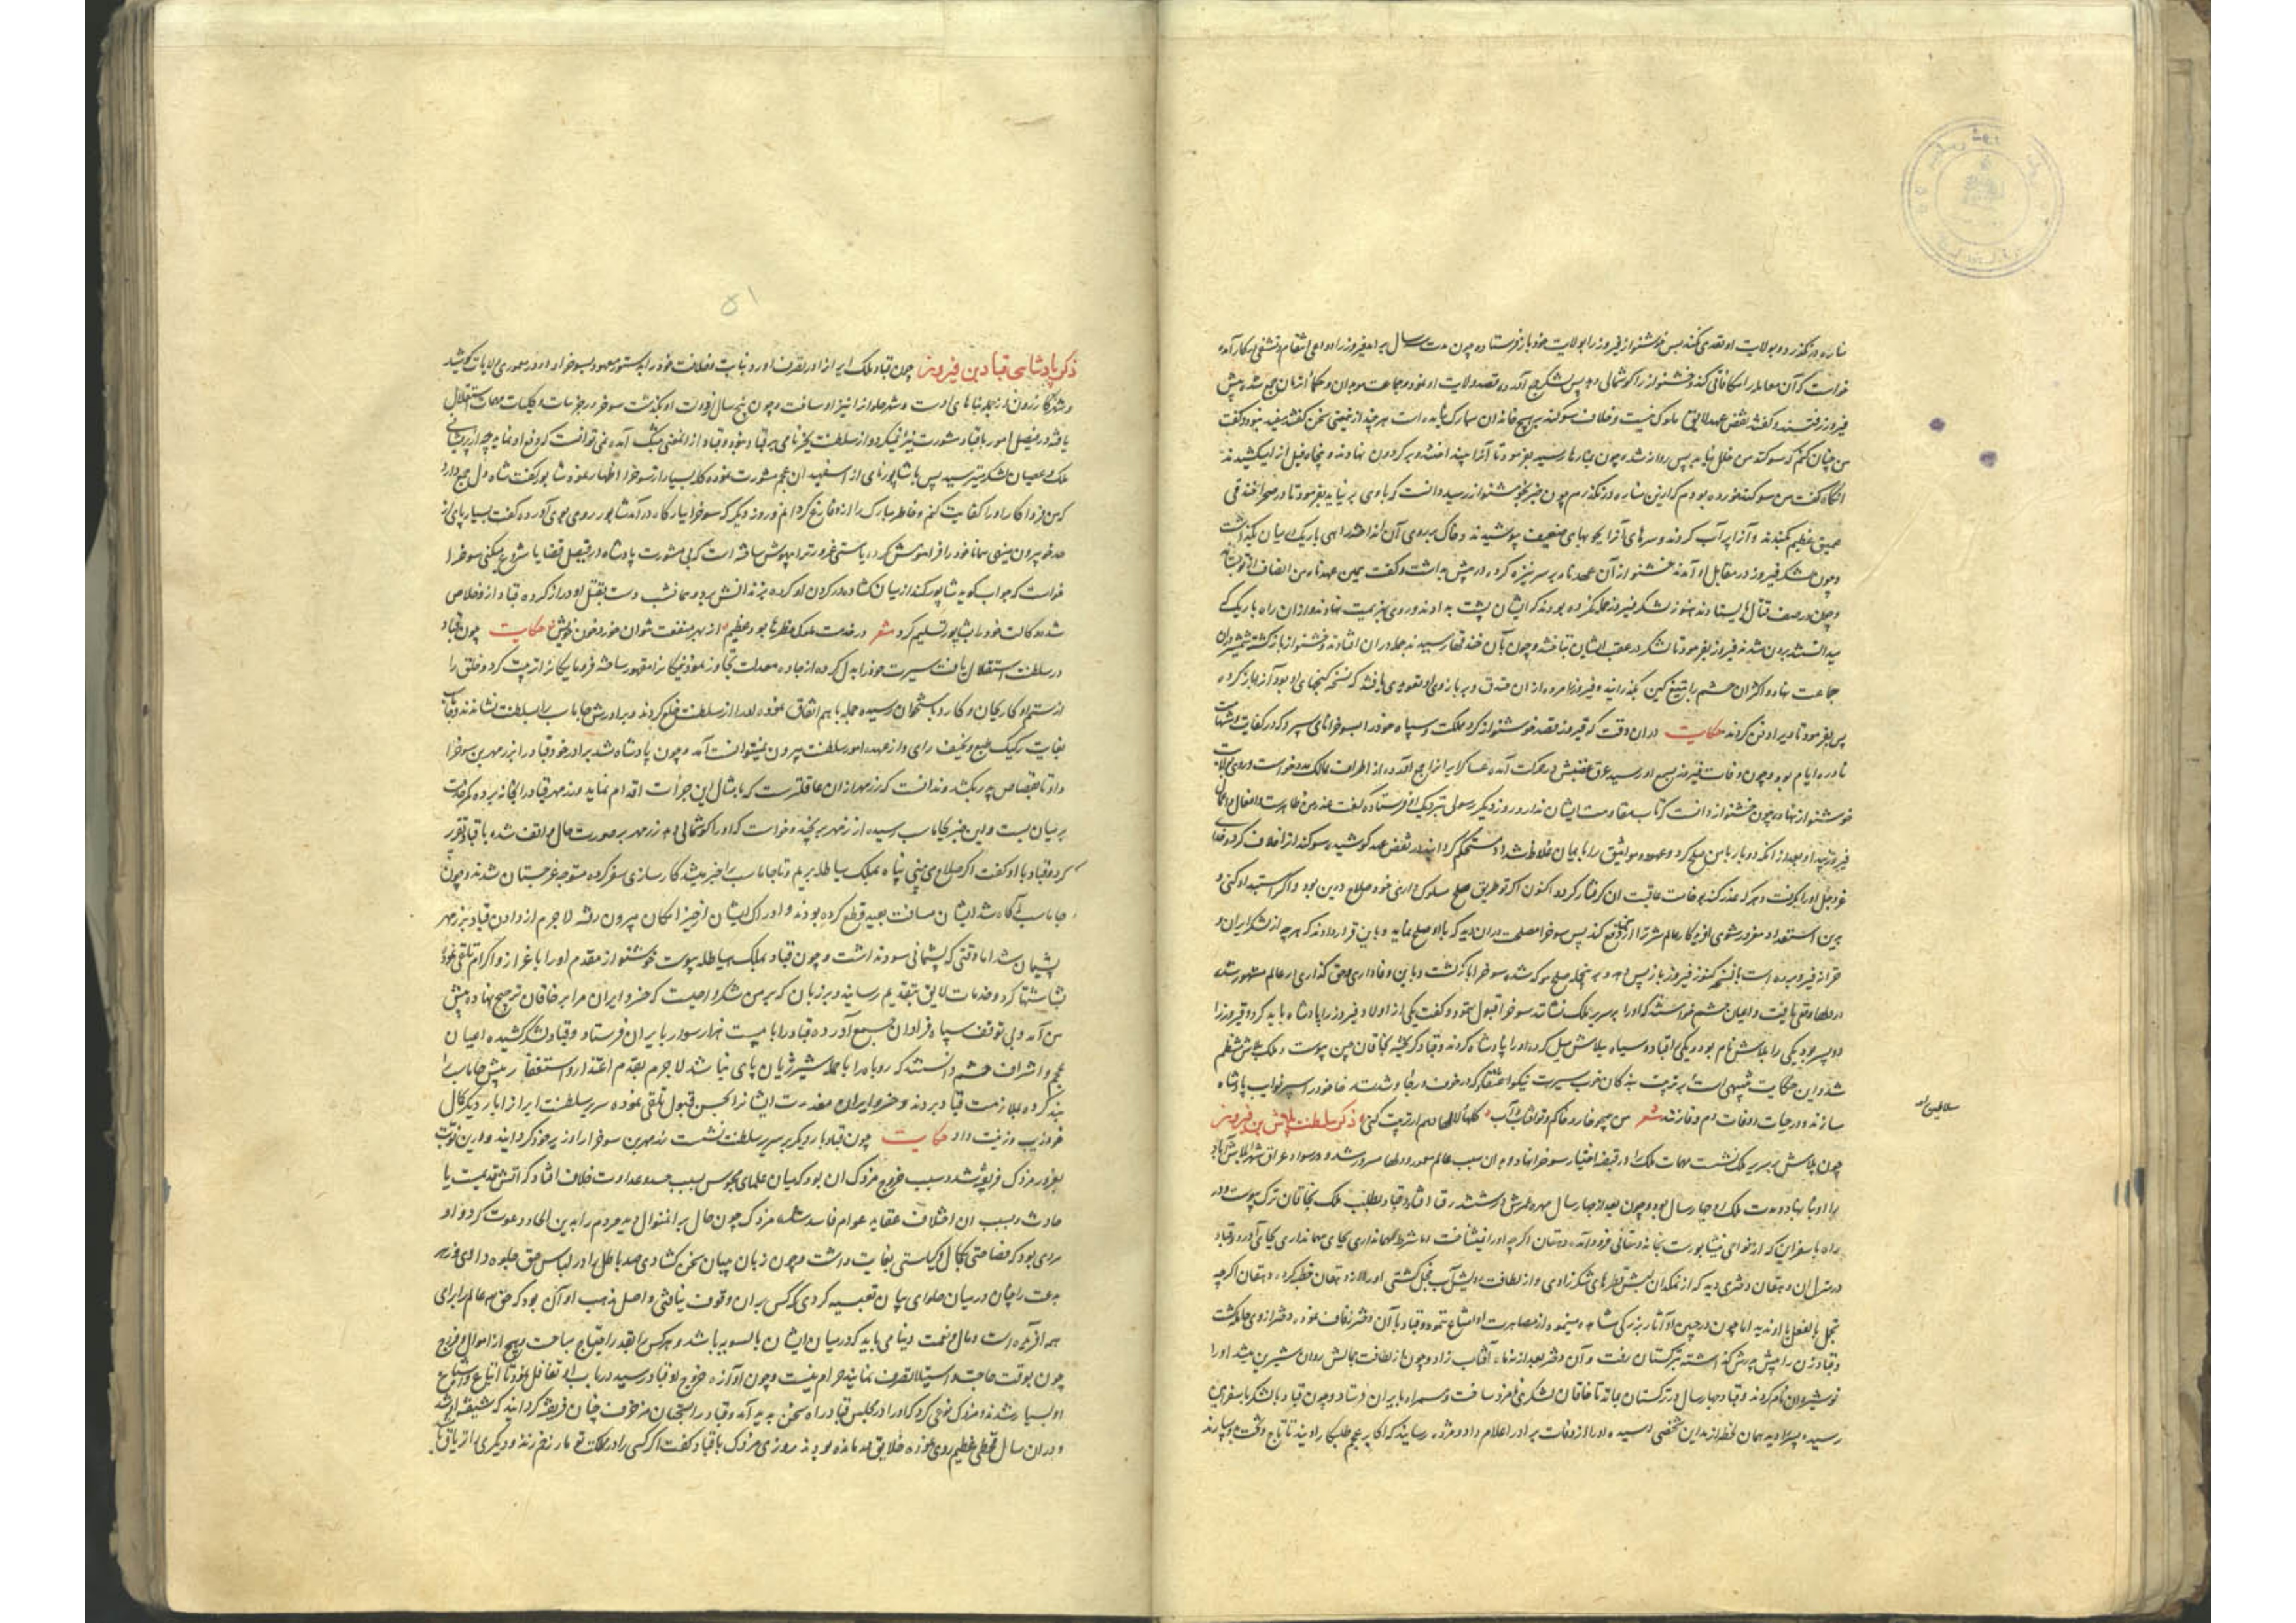 مناره در نگذرد و بولایت او تعدی نکند پس خوشنواز فیروز را بولایت خود باز فرستاد و چون مدت سال بر آمد فیروز را دواعی انتقام و تشفی در کار آمد
خواست که آن معامله را مکافاتی کند و خشنواز را کوشمالی دهد پس لشکر جمع آورده قصد ولایت او نمود و جماعت موبدان و حکما از آن جمع شده پیش
فیروز رفتند و گفتند نقض عهد لایق ملوک نیست و خلاف سوکند بر هیچ خاندان مبارک نیامده است هر چند از این معنی سخن گفتند مفید نبود و گفت
من چنان کنم که سوکند من خلل نیابد پس روانه شد و چون بمناره رسید بفرمود تا آنرا بینداختند و بر گردون نهادند و پنجاه فیل آنرا میکشیدند
آنگاه گفت من سوکند خورده بودم که ازین مناره در نگذرم چون خبر بخوشنواز رسید دانست که با وی بر نیاید بفرمود تا در صحرا خندقی
عمیق عظیم بکندند و آنرا پر آب کردند و سرهای آنرا بچوبهای ضعیف بپوشیدند و خاک بر روی آن انداختند راهی باریک در میان بگذاشت
و چون لشکر فیروز در مقابل او آمدند خشنواز آن عهدنامه بر سر نیزه کرده در پیش بداشت و گفت بمین عهدنامه من انصاف از تو بستاند
و چون در صف قتال بایستادند هنوز لشکر فیروز حمله نکرده بودند که ایشان پشت بدادند و روی بهزیمت نهادند و از آن راه باریک که
میدانستند برون شدند فیروز بفرمود تا لشکر در عقب ایشان بتاختند و چون بآن خندقها رسیدند جمله در آن افتادند و خشنواز باز گشته شمشیر در آن
جماعت نهاد و اکثر آن حشم را بتیغ کین بگذرانید و فیروز را مرده از آن خندق و بر بازوی او تعویذی یافتند که نسخه گنجهای او بود آنرا باز کرده
پس بفرمود تا ویرا دفن کردند حکایت در آن وقت که فیروز قصد خوشنواز کرد مملکت و سپاه خود را بسوخرا نامی سپرد که در کفایت و شهامت
نادره ایام بود و چون وفات فیروز بسمع او رسید عرق غضبش در حرکت آمده عساکر ایران جمع آورده از اطراف ممالک مدد خواست و روی بولایت
خوشنواز نهاد و چون خشنواز دانست که تاب مقاومت ایشان ندارد روز دیگر رسولی نزدیک او فرستاد که گفت
فیروز پیدا و بعد از آنکه دو بار با من صلح کرد و عهود و مواثیق را بایمان غلاظ شداد مستحکم گردانید در نقض عهد کوشیده سوکند را خلاف کرد
عز و جل او را بگرفت و هر که عذر کند بوخامت عاقبت آن گرفتار گردد اکنون اگر تو طریق صلح مسلوک داری خود صلاح درین بود و اگر استبداد کنی و
برین استعداد مغرور شوی آفریدگار عالم شر ترا از ما دفع کند پس سوخرا مصلحت در آن دید که با او صلح نماید و باین قرار دادند که هر چه از لشکر ایران و
خزانه فیروز برده است با نسخه کنوز فیروز باز پس دهد و بر این جمله صلح موکد شده سوخرا باز گشت و باین وفاداری و حق گذاری در عالم مشهور شده
در دلها وقعی یافت و اعیان حشم خواستند که او را بر سریر ملک نشانند سوخرا قبول ننمود و گفت یکی از اولاد فیروز را پادشاه باید کرد و فیروز را
دو پسر بود یکی را بلاش نام بود و یکی قباد و سپاه ببلاش میل کرده او را پادشاه کردند و قباد گریخته بخاقان چین پیوست و ملک بلاش منتظم
شد و این حکایت تنبیهی است بر تربیت بندگان خوب سیرت نیکو اعتقاد که در خوف و رجا و شدت و رخا خود را سپر نواب پادشاه
سازند و در حیات و وفات دم وفا زنند شعر من همچو خار و خاکم و تو آفتاب و آب کلها و لالها دهم ار تربیت کنی ذکر سلطنت بلاش بن فیروز
چون بلاش بر سریر ملک نشست مهمات ملک را در قبضه اختیار سوخرا نهاد و بدان سبب عالم معمور و دلها مسرور شد و در سواد عراق شهر بلاش آباد
را او بنا نهاد و مدت ملک او چهار سال بود و چون بعد از چهار سال مهره عمرش در ششدر فنا افتاد و قباد بطلب ملک بخاقان ترک پیوست و در
راه باسفراین که از نواحی نیشابورست بخانه دهقانی فرود آمد و دهقان اگر چه او را نشناخت اما شرط مهمانداری بجای آورد و قباد
در منزل آن دهقان دختری دید که از نمکدان لبش قطرهای شکر زادی و از لطافت رویش آب خجل گشتی او را از دهقان خطبه کرد و دهقان اگر چه
تجمل بالفعل با او ندید اما چون در جبین او آثار بزرگی مشاهده مینمود از مصاهرت او امتناع ننمود و قباد با آن دختر زفاف نمود و دختر از وی حامله گشت
و قباد زن را پیش پدرش گذاشته بترکستان رفت و آن دختر بعد از نه ماه آفتاب زاد و چون از لطافت جمالش روان شیرین میشد او را
نوشیروان نام کردند و قباد چهار سال در ترکستان بماند تا خاقان لشکری نامزد ساخت و همراه بایران فرستاد و چون قباد با لشکر باسفراین
رسید و پسر را دید همان لحظه از مداین شخصی رسید و او را از وفات برادر اعلام داد و مژده رسانید که اکابر عجم طلبکار اویند تا تاج و تخت بوی سپارند
۵۱
ذکر پادشاهی قباد بن فیروز چون قباد ملک ایران را در تصرف آورد و نیابت و خلافت خود را بدستور معهود بسوخرا داد و در معموری ولایات کوشید
و شهر کازرون از جمله بناهای اوست و شهر حلوان را نیز او ساخت و چون پنج سال از دولت او بگذشت سوخرا در جزئیات و کلیات مهمات استقلال
یافته در فیصل امور با قباد مشورت نیز نمیکرد و از سلطنت بجز نامی بر قباد نبود و قباد از این معنی بتنگ آمده نمی‌توانست که دفع او نماید چه از پریشانی
ملک و عصیان لشکر میترسید پس با شاپور نامی از اسفهبدان عجم مشورت نموده گله بسیار از سوخرا اظهار نمود شاپور گفت شاه دل جمع دارد
که من فردا کار او را کفایت کنم و خاطر مبارک را از او فارغ گردانم و روز دیگر که سوخرا ببارگاه در آمد شاپور روی بوی آورده گفت بسیار پای از
حد خود بیرون مینهی همانا خود را فراموش کرده یا مستی غرور ترا بیهوش ساخته است که بی مشورت پادشاه در فیصل قضایا شروع میکنی سوخرا
خواست که جواب گوید شاپور کمند از میان گشاده در گردن او کرده بزندانش برد و همان شب دست بقتل او دراز کرده قباد از او خلاص
شد و وکالت خود را بشاپور تسلیم کرد شعر در خدمت ملوک خطرها بود عظیم از بهر منفعت نتوان خورد خون خویش حکایت چون قباد
در سلطنت استقلال یافت سیرت خود را بدل کرده از جاده معدلت تجاوز نمود نیکان را مقهور ساخته فرومایگان را تربیت کرد و خلق را
از ستم او کار بجان و کارد باستخوان رسیده جمله با هم اتفاق نموده او را از سلطنت خلع کردند و برادرش جاماسب را بسلطنت نشاندند و جاماسب
بغایت رکیک طبع و نحیف رای و از عهده امور سلطنت بیرون نمیتوانست آمد و چون پادشاه شد برادر خود قباد را بزرمهر بن سوخرا
داد تا بقصاص پدر بکشد و ندانست که زرمهر از آن عاقلتر است که بمثال این جرأت اقدام نماید و زرمهر قباد را بخانه برده کمر خدمت
بر میان بست و این خبر بجاماسب رسیده از زرمهر برنجید و خواست که او را کوشمالی دهد زرمهر بر صورت حال واقف شده با قباد تقریر
کرد و قباد با او گفت اگر صلاح می بینی پناه بملک هیاطله بریم و تا جاماسب را خبر میشد کارسازی سفر کرده متوجه غرجستان شدند و چون
جاماسب آگاه شد ایشان مسافت بعید قطع کرده بودند و ادراک ایشان از حیز امکان بیرون رفته لاجرم از دادن قباد بزرمهر
پشیمان شد اما وقتی که پشیمانی سود نداشت و چون قباد بملک هیاطله پیوست خوشنواز مقدم او را باعزاز و اکرام تلقی نموده
بشاشتها کرد و خدمات لایق بتقدیم رسانید و بر زبان راند که بر من شکر واجبست که خسرو ایران مرا بر خاقان ترجیح نهاده پیش
من آمد و بی توقف سپاه فراوان جمع آورده قباد را با بیست هزار سوار بایران فرستاد و قباد لشکر کشیده اعیان
عجم و اشراف حشم دانستند که روباه را با حمله شیر ژیان پای نباشد لاجرم بقدم اعتذار و استغفار پیش جاماسب را
بند کرده بملازمت قباد بردند و خسرو ایران معذرت ایشان را بحسن قبول تلقی نموده سریر سلطنت ایران را بار دیگر بکمال
خود زیب و زینت داد حکایت چون قباد بار دیگر بر سریر سلطنت نشست زرمهر بن سوخرا را وزیر خود گردانید و درین نوبت
بغرور مزدک فریفته شد و سبب خروج مزدک آن بود که میان علمای مجوس بسبب حسد و عداوت خلاف افتاد که آتش قدیمست یا
حادث و بسبب آن اختلاف عقاید عوام فاسد شد مزدک چون حال بر آن منوال دید مردم را بدین الحاد دعوت کرد و او
مردی بود که فصاحتی بکمال و کیاستی بغایت داشت و چون زبان ببیان سخن گشادی صد باطل را در لباس حق جلوه دادی و زهر
بدعت را چنان در میان حلوای بیان تعبیه کردی که کس بر آن وقوف نیافتی و اصل مذهب او آن بود که حق همه عالم را برای
همه آفریده است و مال و نعمت دنیا می باید که در میان ایشان بالسویه باشد و هر کس را بقدر احتیاج مباحست و هیچ از اموال و فروج
چون بوقت حاجت و استیلا تصرف نمایند حرام نیست و چون آوازه خروج او بقباد رسید در باب او تغافل نمود تا اتباع و اشیاع
او بسیار شدند و مزدک نوعی کرد که او را در مجلس قباد راه سخن پدید آمد و قباد را بسخنان مزخرف چنان فریفته گردانید که شیفته او شد
و در آن سال قحطی عظیم روی نموده خلایق درمانده بودند روزی مزدک با قباد گفت اگر کسی را در مملکت تو مار زخم زند و دیگری را تریاق